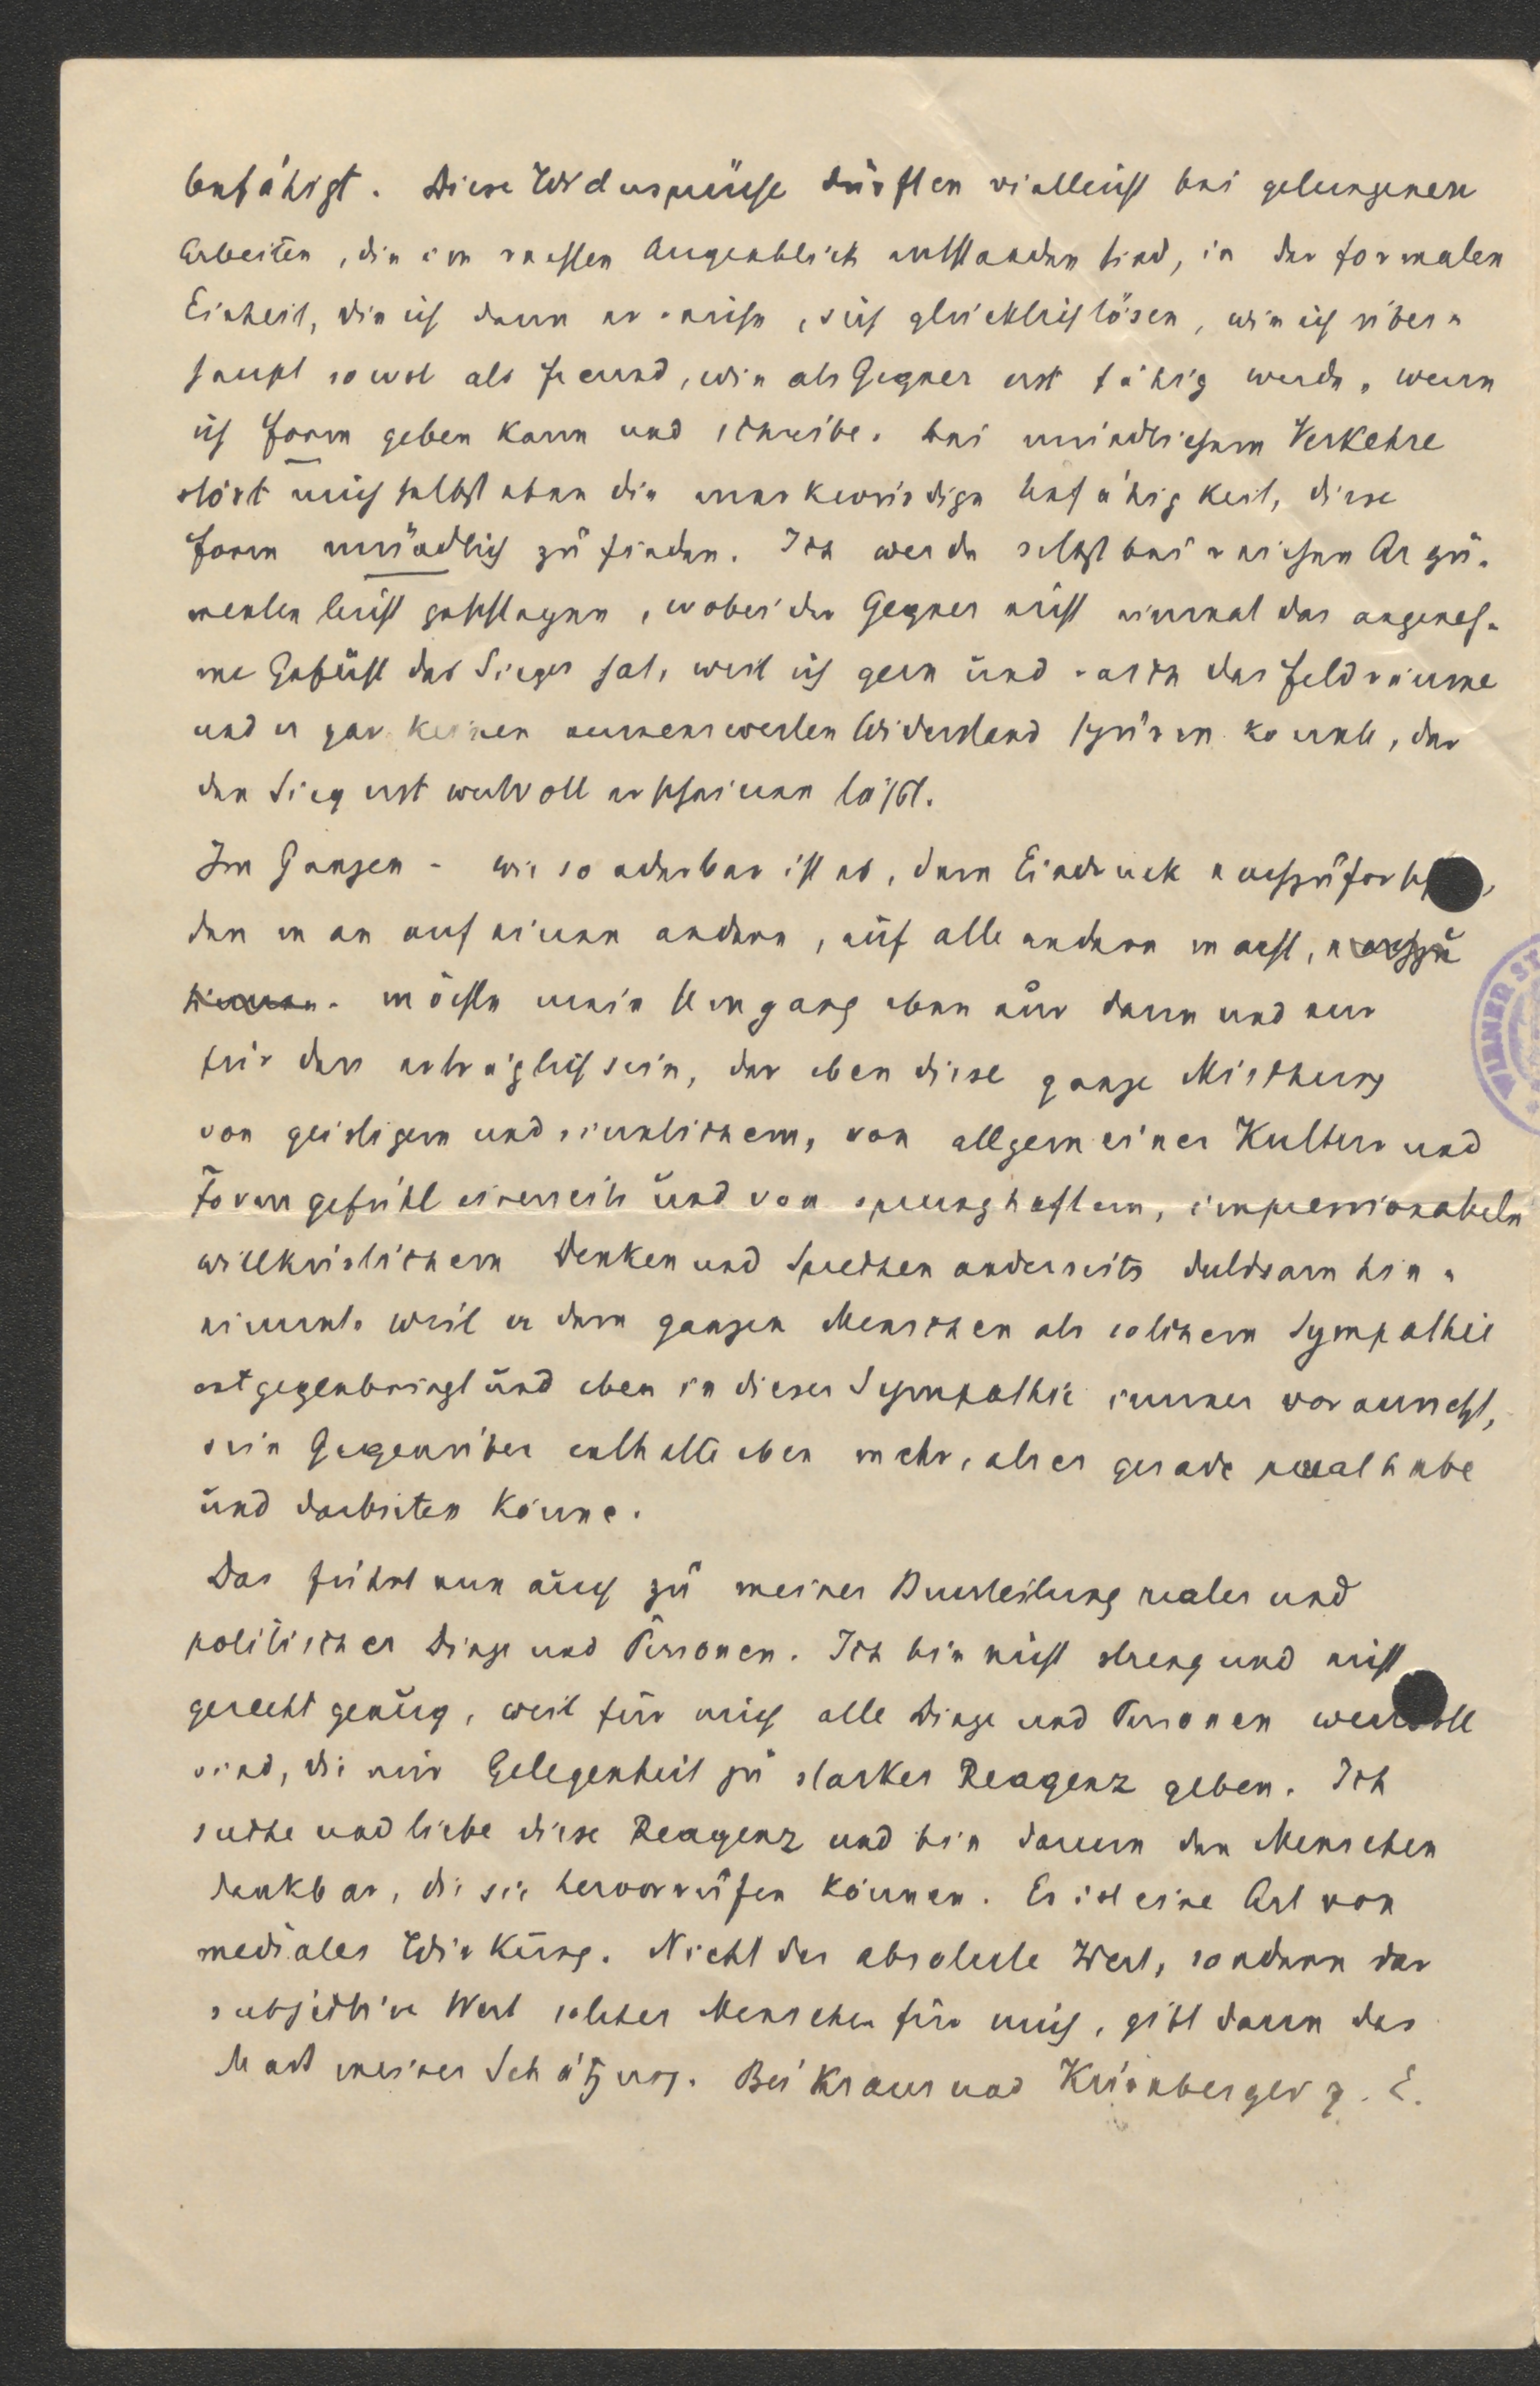 befähigt. Diese Widersprüche dürften vielleicht bei gelungenen
Arbeiten, die im rechten Augenblick entstanden sind, in der formalen
Einheit, die ich dann erreiche, sich glücklich lösen, wie ich über-
haupt sowol als Freund, wie als Gegner erst fähig werde, wenn
ich Form geben kann und schreibe. Bei mündlichem Verkehre
stört mich selbst eben die merkwürdige Unfähigkeit, diese
Form mündlich zu finden. Ich werde selbst bei reichen Argu-
menten leicht geschlagen, wobei der Gegner nicht einmal das angeneh-
me Gefühl des Sieges hat, weil ich gern und rasch das Feld räume
und er gar keinen nennenswerten Widerstand spüren konnte, der
den Sieg erst wertvoll erscheinen läßt.
Im Ganzen - wie sonderbar ist es, dem Eindruck nachzuforschen,
den man auf einen andern, auf alle andern macht, nachzu
sinnen - möchte mein Umgang eben nur dann und nur
für den erträglich sein, der eben diese ganze Mischung
von geistigem und sinnlichem, von allgemeiner Kultur und
Formgefühl einerseits und von sprunghaftem, impressionabeln
willkürlichem Denken und Sprechen anderseits duldsam hin-
nimmt, weil er dem ganzen Menschen als solchem Sympathie
entgegenbringt und eben in dieser Sympathie immer voraussetzt,
sein Gegenüber enthalte eben mehr, als er gerade parat habe
und darbieten könne.
Das führt nun auch zu meiner Beurteilung realer und
politischer Dinge und Personen. Ich bin nicht streng und nicht
gerecht genug, weil für mich alle Dinge und Personen wertvoll
sind, die mir Gelegenheit zu starker Reagenz geben. Ich
suche und liebe diese Reagenz und bin darum den Menschen
dankbar, die sie hervorrufen können. Es ist eine Art von
medialer Wirkung. Nicht der absolute Wert, sondern der
subjektive Wert solcher Menschen für mich, gibt dann das
Mass meiner Schätzung. Bei Kraus und Kürnberger z. B.
WIENER ST